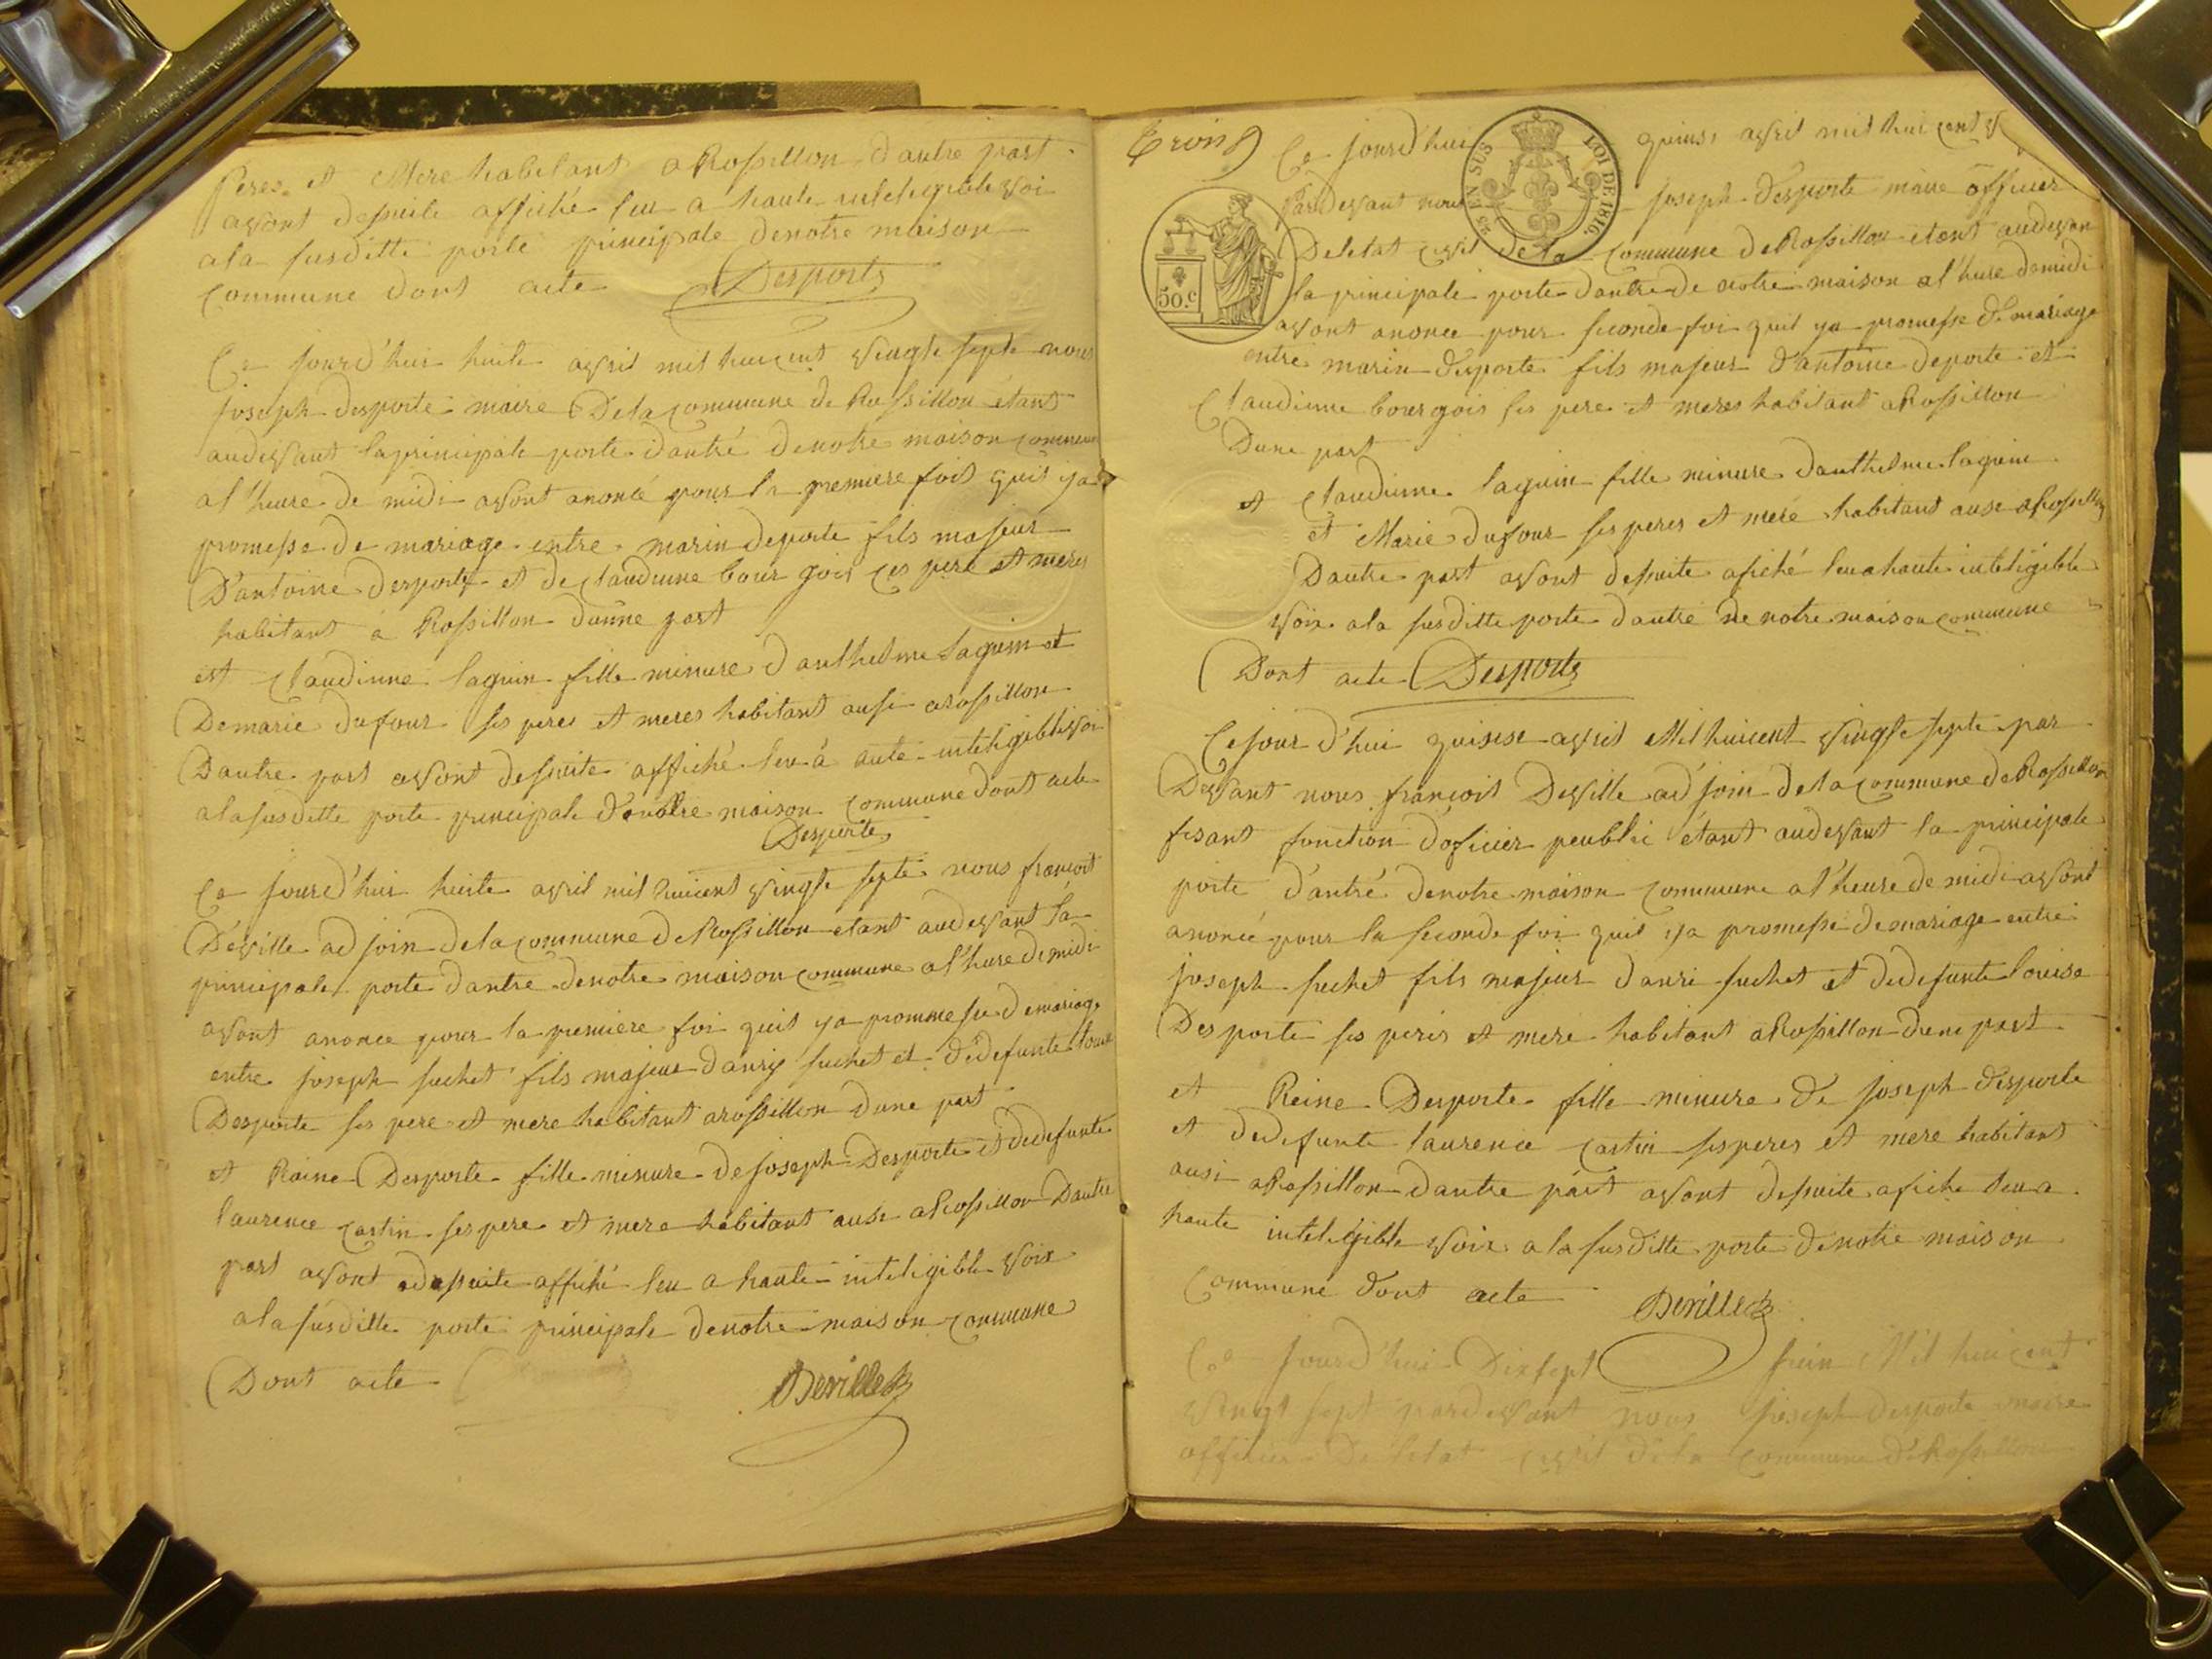 Peres et Mere habitant a Rossillon d'autre part
avont desuite affiché leu a haute intelegible voi
a la susditte porte principale denotre maison
commune dont acte Desporte
Ce jourd'hui huite avril mil huicent vingte septe nous
joseph desporte maire Dela commune de Rossillon étant
audevant laprincipale porte dantré denotre maison commune
a l'heure de midi avont anoncé pour la premiere fois quil ya
promesse de mariage entre marin deporte fils majeur
D'antoine desporte et de claudinne bourgois ces pere et meres
habitant à Rossillon dunne part
et claudinne laguin fille minure d'anthelme laguin et
Demarie dufour ses peres et meres habitant ausi arossillon
Dautre part avont desuite affiché leu à aute inteligible voi
alasusditte porte principale denotre maison commune dont acte
Desporte
Ce jourd'hui huite avril mil huicent vingte septe nous françoit
Deville adjoin dela commune deRossillon etant audevant la
principale porte dantré denotre maison commune al'hure demidi
avont anonce pour la premiere foi quil ya prommesse demariage
entre joseph suchet fils majeur danry suchet et dedefunte louise
Desporte ses pere et mere habitant arossillon dune part
et Raine Desporte fille minure de joseph Desporte et dedefunte
laurence castin ses pere et mere habitant ausi aRossillon Dautre
part avont desuite affiché leu a haute inteligible voix
a la susditte porte principale denotre maison commune
Dont acte Deville
Trois
Ce jourd'hui quinse avril mil huicent
Pardevant nous joseph desporte maire officier
5.es EN SUS LOI DE 1816.
Deletat civil dela commune deRossillon etant audevan
50.c
la principale porte dantre de notre maison al'hure demidi
avont anonce pour seconde foi quil ya promesse demariage
entre marin desporte fils majeur d'antoine deporte et
Claudinne bourgois ses pere et meres habitant aRossillon
Dune part
et claudinne laguin fille minure danthelme laguin
et Marie dufour ses peres et mere habitant ause aRossillon
Dautre part avont desuite afiché leu a haute inteligible
voix a la susditte porte dantré de notre maison commune
Dont acte Desporte
Ce jour d'hui quinse avril Mil huicent vingte septe par
Devant nous françoit Deville adjoin dela commune deRossillon
fesant fonction d'oficier peublic étant audevant la principale
porte d'antré denotre maison commune a l'heure de midi avont
anoncé pour la seconde foi quil ya promesse demariage entre
joseph suchet fils majeur danri suchet et dedefunte louise
Desporte ses peres et mere habitant aRossillon dune part
et Reine Desporte fille minure de joseph desporte
et dedefunte laurence castin ses peres et mere habitant
ausi aRossillon dautre part avont desuite afiche leu a
haute inteligible voix a la susditte porte denotre maison
commune dont acte Deville
Ce jourd'hui Dixsept juin Mil huicent
vingt sept pardevant nous joseph desporte maire
officier De letat civil dela commune deRossillon